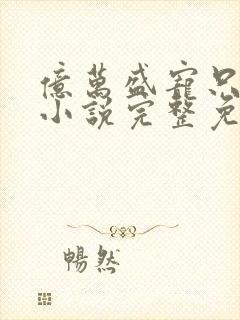 億萬盛寵只
小說完整免
暢然